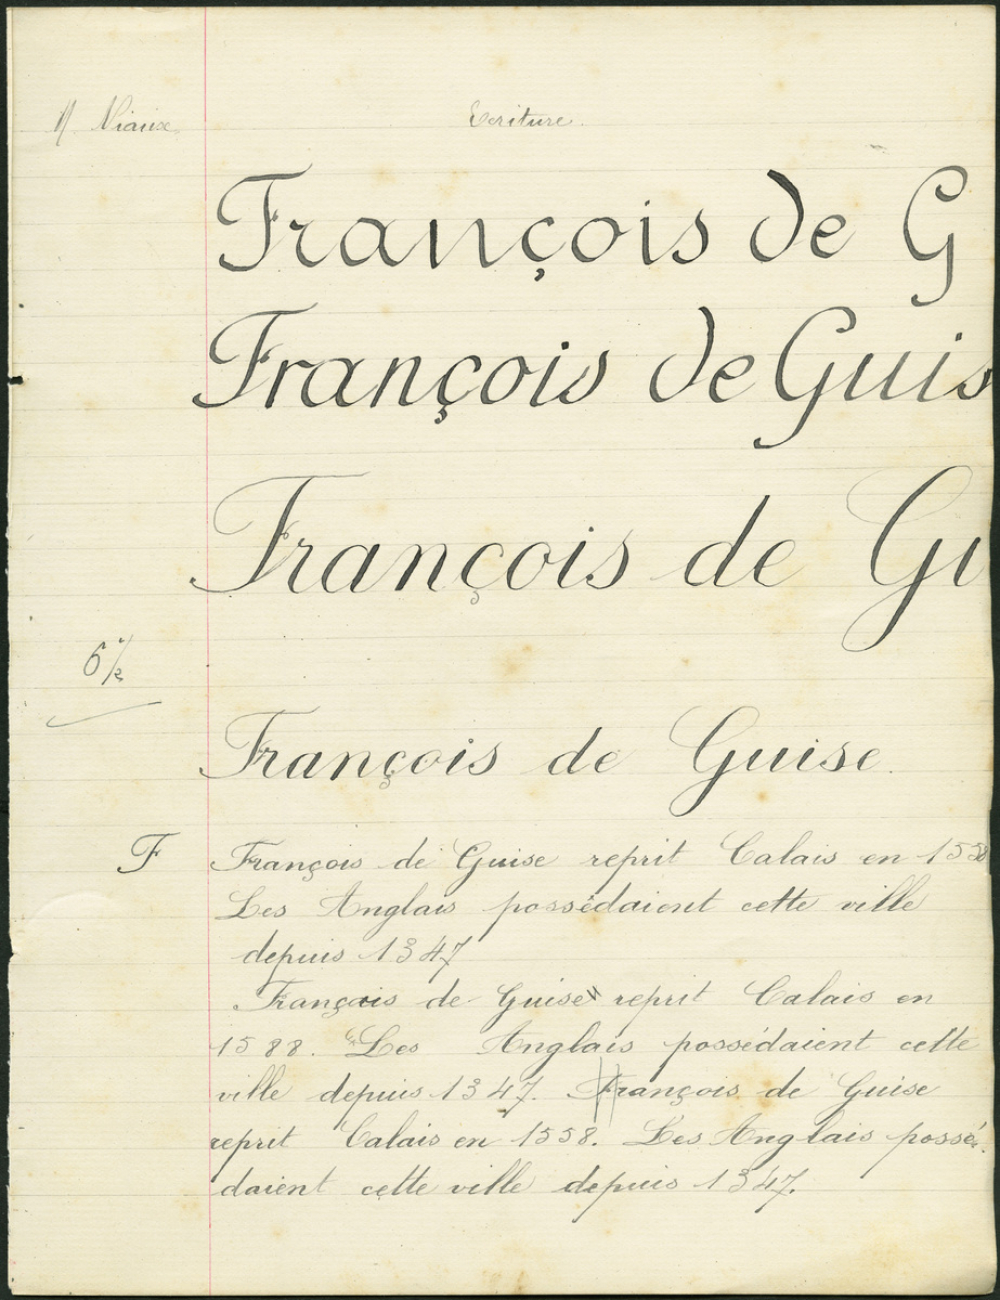 Ecriture.
François de G
François de Guis
François de Gu
6 1/2
François de Guise.
F
François de Guise reprit Calais en 1558
Les Anglais possédaient cette ville
depuis 1347
François de Guise reprit Calais en
1588. Les Anglais possédaient cette
ville depuis 1347. François de Guise
reprit Calais en 1558. Les Anglais possé-
daient cette ville depuis 1347.